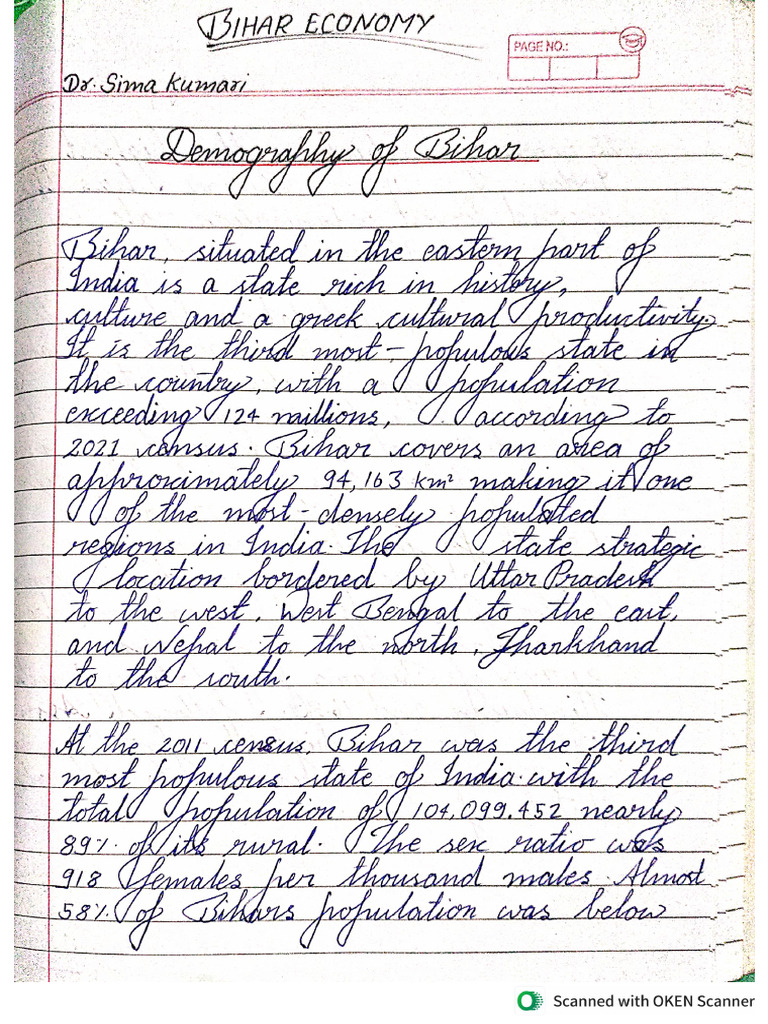 BIHAR ECONOMY
PAGE NO.:
Dr. Sima Kumari
Demography of Bihar
Bihar, situated in the eastern part of
India is a state rich in history,
culture and a greek cultural productivity.
It is the third most-populous state in
the country, with a population
exceeding 124 millions, according to
2021 census. Bihar covers an area of
approximately 94,163 km² making it one
of the most-densely populated
regions in India. The state strategic
location bordered by Uttar Pradesh
to the west, West Bengal to the east,
and Nepal to the north, Jharkhand
to the south.
At the 2011 census, Bihar was the third
most populous state of India with the
total population of 104,099.452 nearly
89% of its rural. The sex ratio was
918 females per thousand males. Almost
58% of Bihars population was below
Scanned with OKEN Scanner